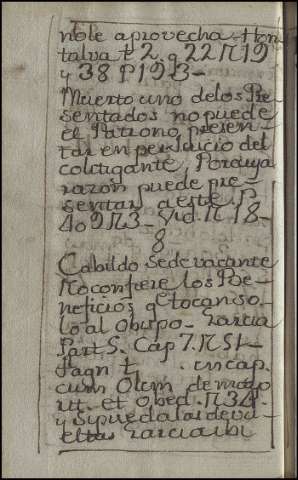 nole aprovecha Hon
talva t 2. q 22 N 19
y 38 P 193-
Muerto uno delos Pre
sentados no puede
el Patrono presen-
tar en perjuicio del
colitigante Porcuya
razon puede pre-
sentar a este. P.
N3- Vid. N. 18-
8
Cabildo Sede vacante
No confiere los Be-
neficios q tocan so-
lo al obispo- Garcia
Part 5. Cap 7. N 51-
Fagn t . in cap.
cum Olim de
et obed. N 34.
y si puedalas devu-
eltas Garcia ibi